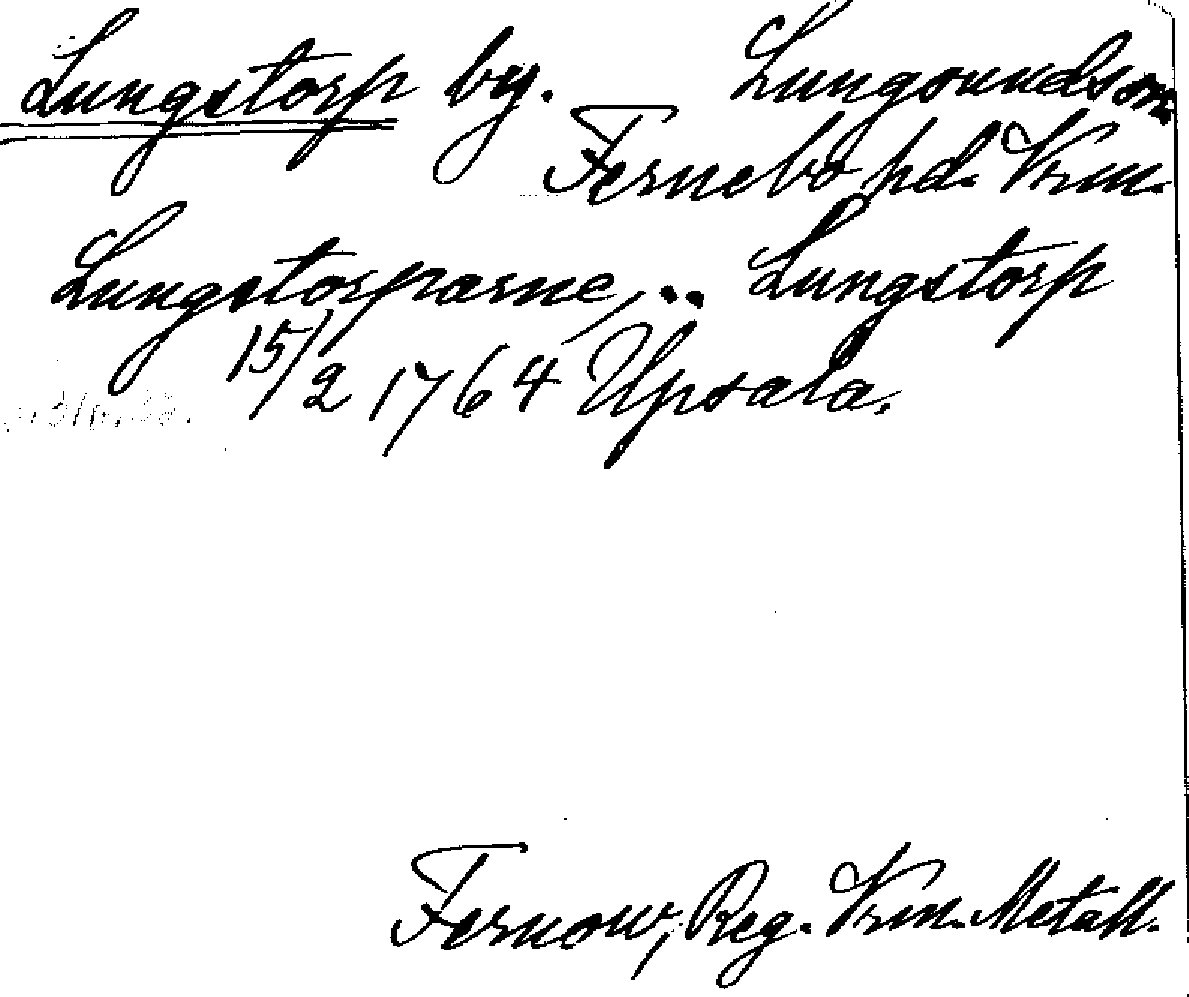 Lungstorp by. Lungsundssn
Fernebo hd. Vrm.
Lungstorparne, .. Lungstorp
15/2 1764 Upsala.
Fernow, Reg. Vrm. Metall.